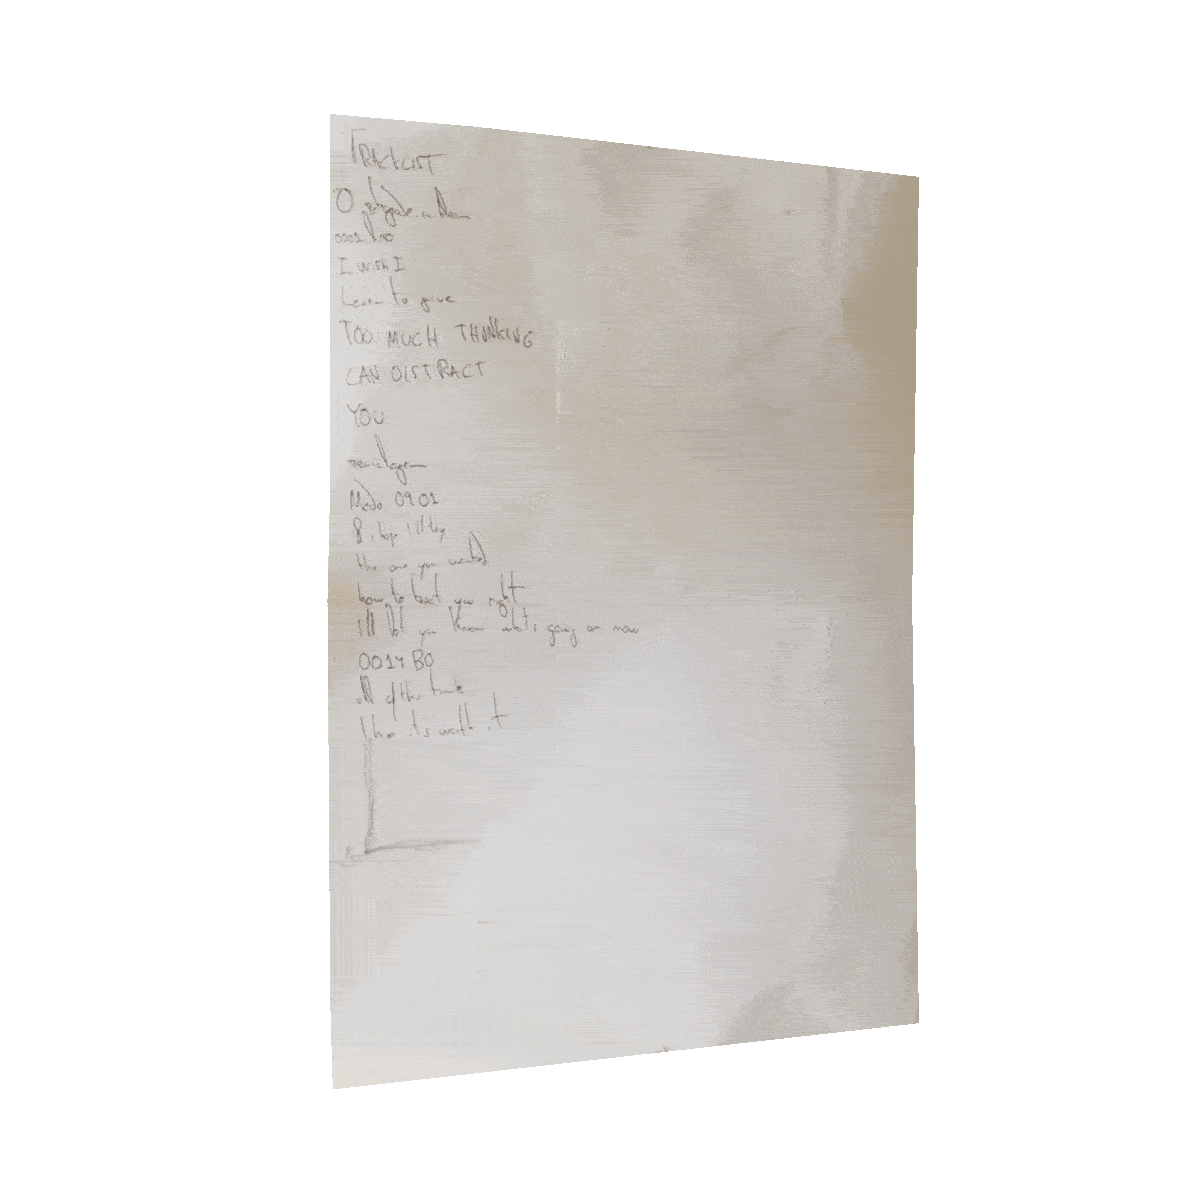 TRACKLIST
O
0001
I WISH I
learn to give
TOO MUCH THINKING
CAN DISTRACT
YOU
Modo 0901
the one you wanted
how to beat you right
i'll let you know what's going on now
0014 BO
all of this time
I hope it's worth it